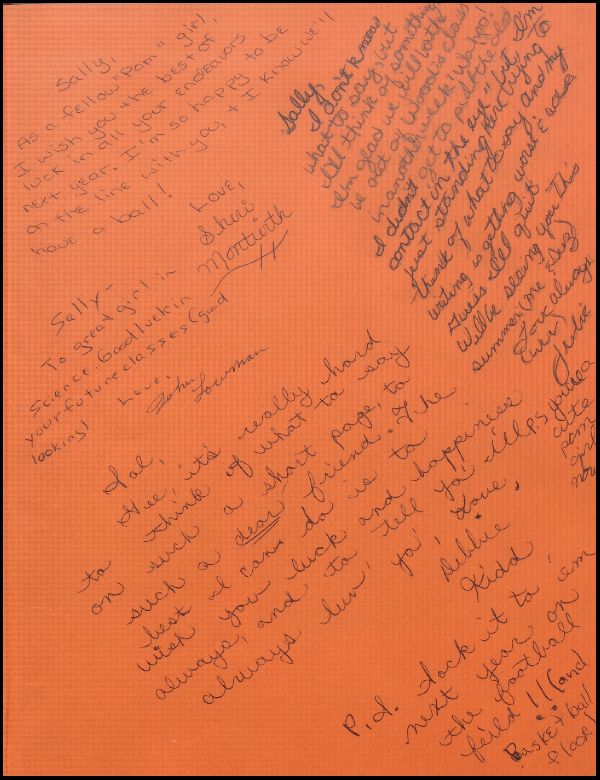 Sally,
As a fellow "Pom" girl,
I wish you the best of
luck in all your endeavors
next year. I'm so happy to be
on the line with you, + I know we'll
have a ball!
Love,
Sheri
Montieth
Sally,
I don't know
what to say, but
I'll think of something
I'm glad we'll both
be out of Wood's class
in another week, whoo!
I didn't get to put the old
contact in the eye, but I'm
just standing here trying to
think of what to say and my
writing is getting worst &
I guess I'll quit
Will be seeing you this
summer (me & Suz)
Love always
Julie
P.S. You're a
cute
pom
girl
now
Sally-
To great girl in
Science. Good luck in
your future classes (good
looking!
Love,
John Lowman
Sal,
Gee, it's really hard
to think of what to say
on such a short page, to
such a dear friend. The
best I can do is to
wish you luck and happiness
always, and to tell ya' I'll
always luv' ya'.
Love,
Debbie
Kidd
P.S. Sock it to 'em
next year on
the football
feild!! (and
Basketball
floor!)